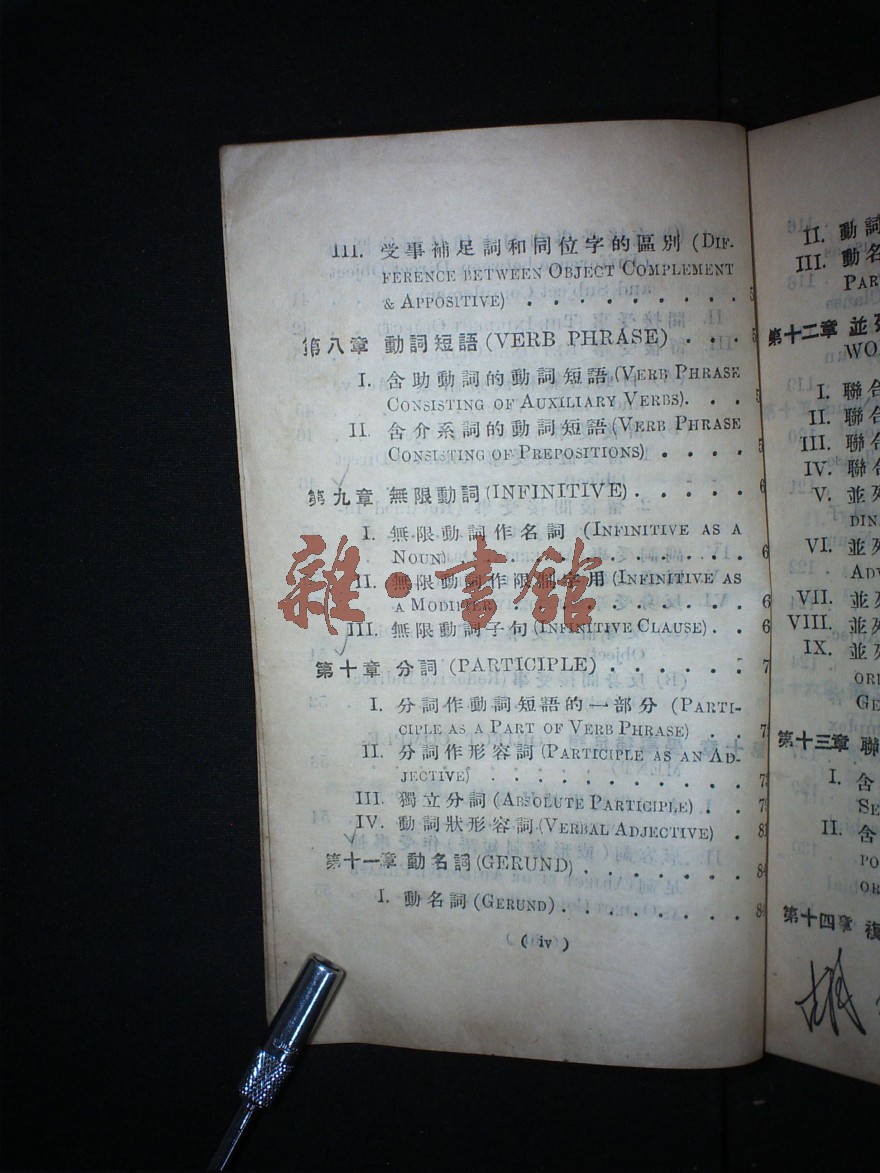 III. 受事補足詞和同位字的區別 (DIF-
FERENCE BETWEEN OBJECT COMPLEMENT
& APPOSITIVE) . . . . . . . . . . 5
第八章 動詞短語 (VERB PHRASE) . . . 5
I. 含助動詞的動詞短語 (VERB PHRASE
CONSISTING OF AUXILIARY VERBS). . . 5
II. 含介系詞的動詞短語 (VERB PHRASE
CONSISTING OF PREPOSITIONS) . . . . 5
第九章 無限動詞 (INFINITIVE) . . . . . 6
I. 無限動詞作名詞 (INFINITIVE AS A
NOUN) . . . . . . . . . . . . 6
II. 無限動詞作限制字用 (INFINITIVE AS
A MODIFIER) . . . . . . . . . . 6
III. 無限動詞子句 (INFINITIVE CLAUSE) . . 6
第十章 分詞 (PARTICIPLE) . . . . . . 7
I. 分詞作動詞短語的一部分 (PARTI-
CIPLE AS A PART OF VERB PHRASE) . . 7
II. 分詞作形容詞 (PARTICIPLE AS AN AD-
JECTIVE) . . . . . . . . . . 7
III. 獨立分詞 (ABSOLUTE PARTICIPLE) . . 7
IV. 動詞狀形容詞 (VERBAL ADJECTIVE) . 8
第十一章 動名詞 (GERUND) . . . . . . . 84
I. 動名詞 (GERUND) . . . . . . . . 84
( iv )
雜·書館
II. 動詞
III. 動名
PAR
第十二章 並列
WO
I. 聯合
II. 聯合
III. 聯合
IV. 聯合
V. 並列
DIN
VI. 並列
ADV
VII. 並列
VIII. 並列
IX. 並列
ORI
GE
第十三章 聯
I. 含
SE
II. 含
PO
OR
第十四章 複